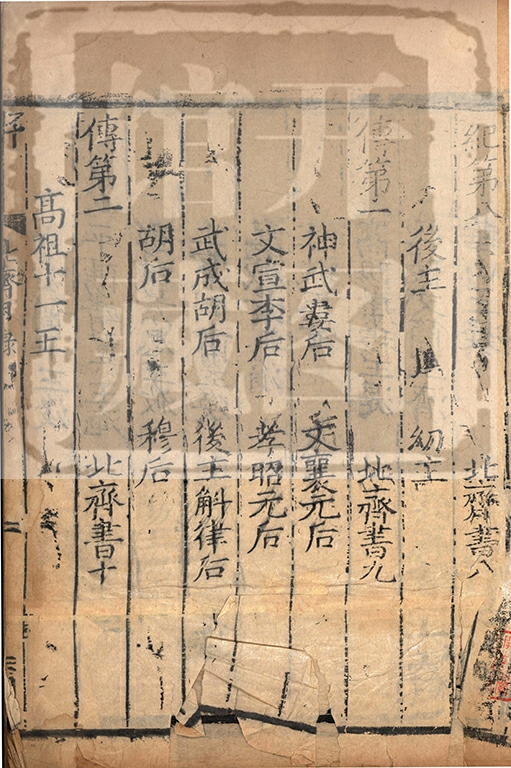 紀第八 北齊書八
後主 幼主
傳第一 北齊書九
神武婁后 文襄元后
文宣李后 孝昭元后
武成胡后 後主斛律后
胡后 穆后
傳第二 北齊書十
高祖十一王